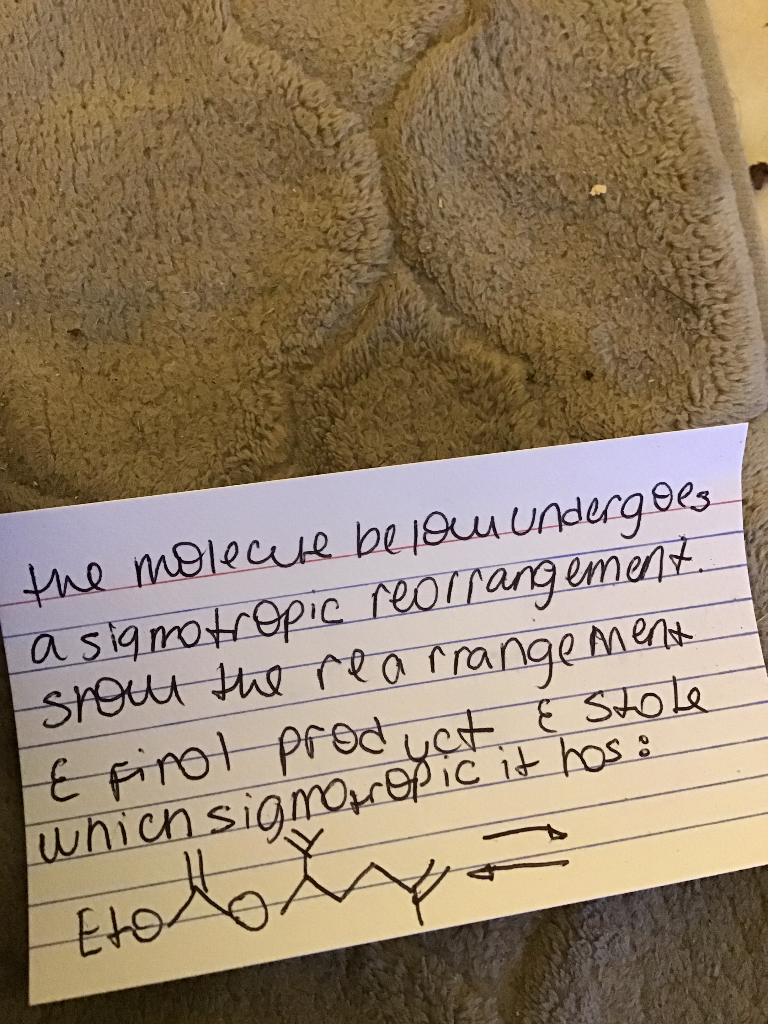 the molecule below undergoes
a sigmotropic reorrangement.
show the rearrangement
& final product & state
which sigmotropic it has:
EtO O